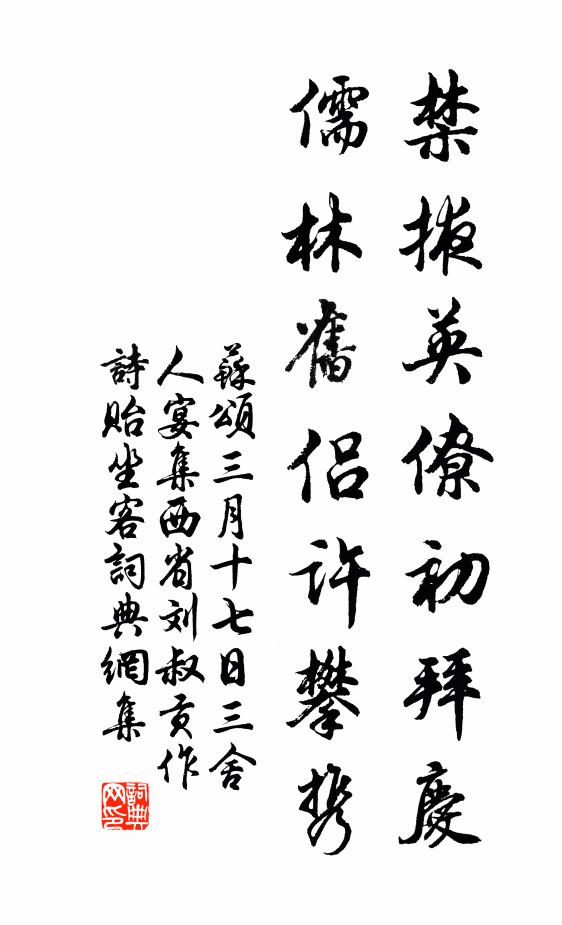 禁掖英僚初拜慶
儒林舊侶許攀携
蘇頌三月十七日三舍
人宴集西省刘叔贡作
詩貽坐客詞典網集
詞典
网印